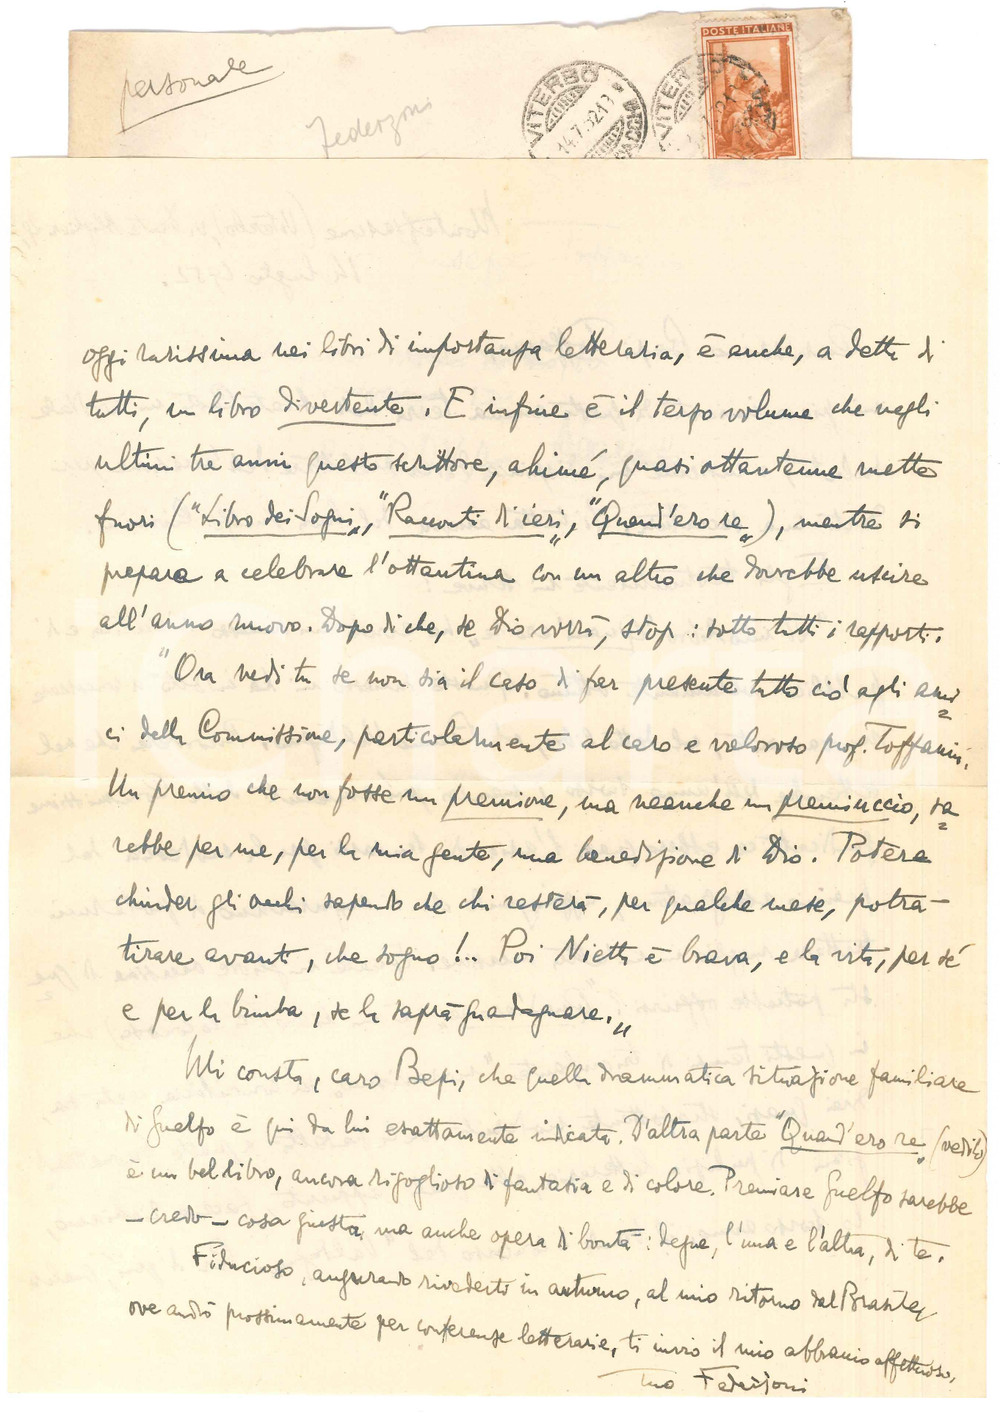 personale
Federzoni
VITERBO
14.7.52.13
VITERBO
POSTE ITALIANE
14 luglio 1952.
oggi rarissima nei libri di importanza letteraria, è anche, a detta di
tutti, un libro divertente. E infine è il terzo volume che negli
ultimi tre anni questo scrittore, ahimé, quasi ottantenne mette
fuori ("Libro dei Sogni„, "Racconti di ieri„, "Quand'ero re„), mentre si
prepara a celebrare l'ottantina con un altro che dovrebbe uscire
all'anno nuovo. Dopo di che, se Dio vorrà, stop: sotto tutti i rapporti.
"Ora vedi tu se non sia il caso di far presente tutto ciò agli ami=
ci della Commissione, particolarmente al caro e valoroso prof. Toffanin.
Un premio che non fosse un premione, ma neanche un premiuccio, sa=
rebbe per me, per la mia gente, una benedizione di Dio. Potera
chiuder gli occhi sapendo che chi resterà, per qualche mese, potrà
tirare avanti, che sogno!.. Poi Nietta è brava, e la vita, per sé
e per la bimba, se la saprà guadagnare.„
Mi consta, caro Bepi, che quella drammatica situazione familiare
di Guelfo è qui da lui esattamente indicata. D'altra parte "Quand'ero re„ (vedilo)
è un bel libro, ancora rigoglioso di fantasia e di colore. Premiare Guelfo sarebbe
– credo – cosa giusta, ma anche opera di bontà: degne, l'una e l'altra, di te.
Fiducioso, augurando rivederti in autunno, al mio ritorno dal Brasile,
ove andrò prossimamente per conferenze letterarie, ti invio il mio abbraccio affettuoso,
Tuo Federzoni